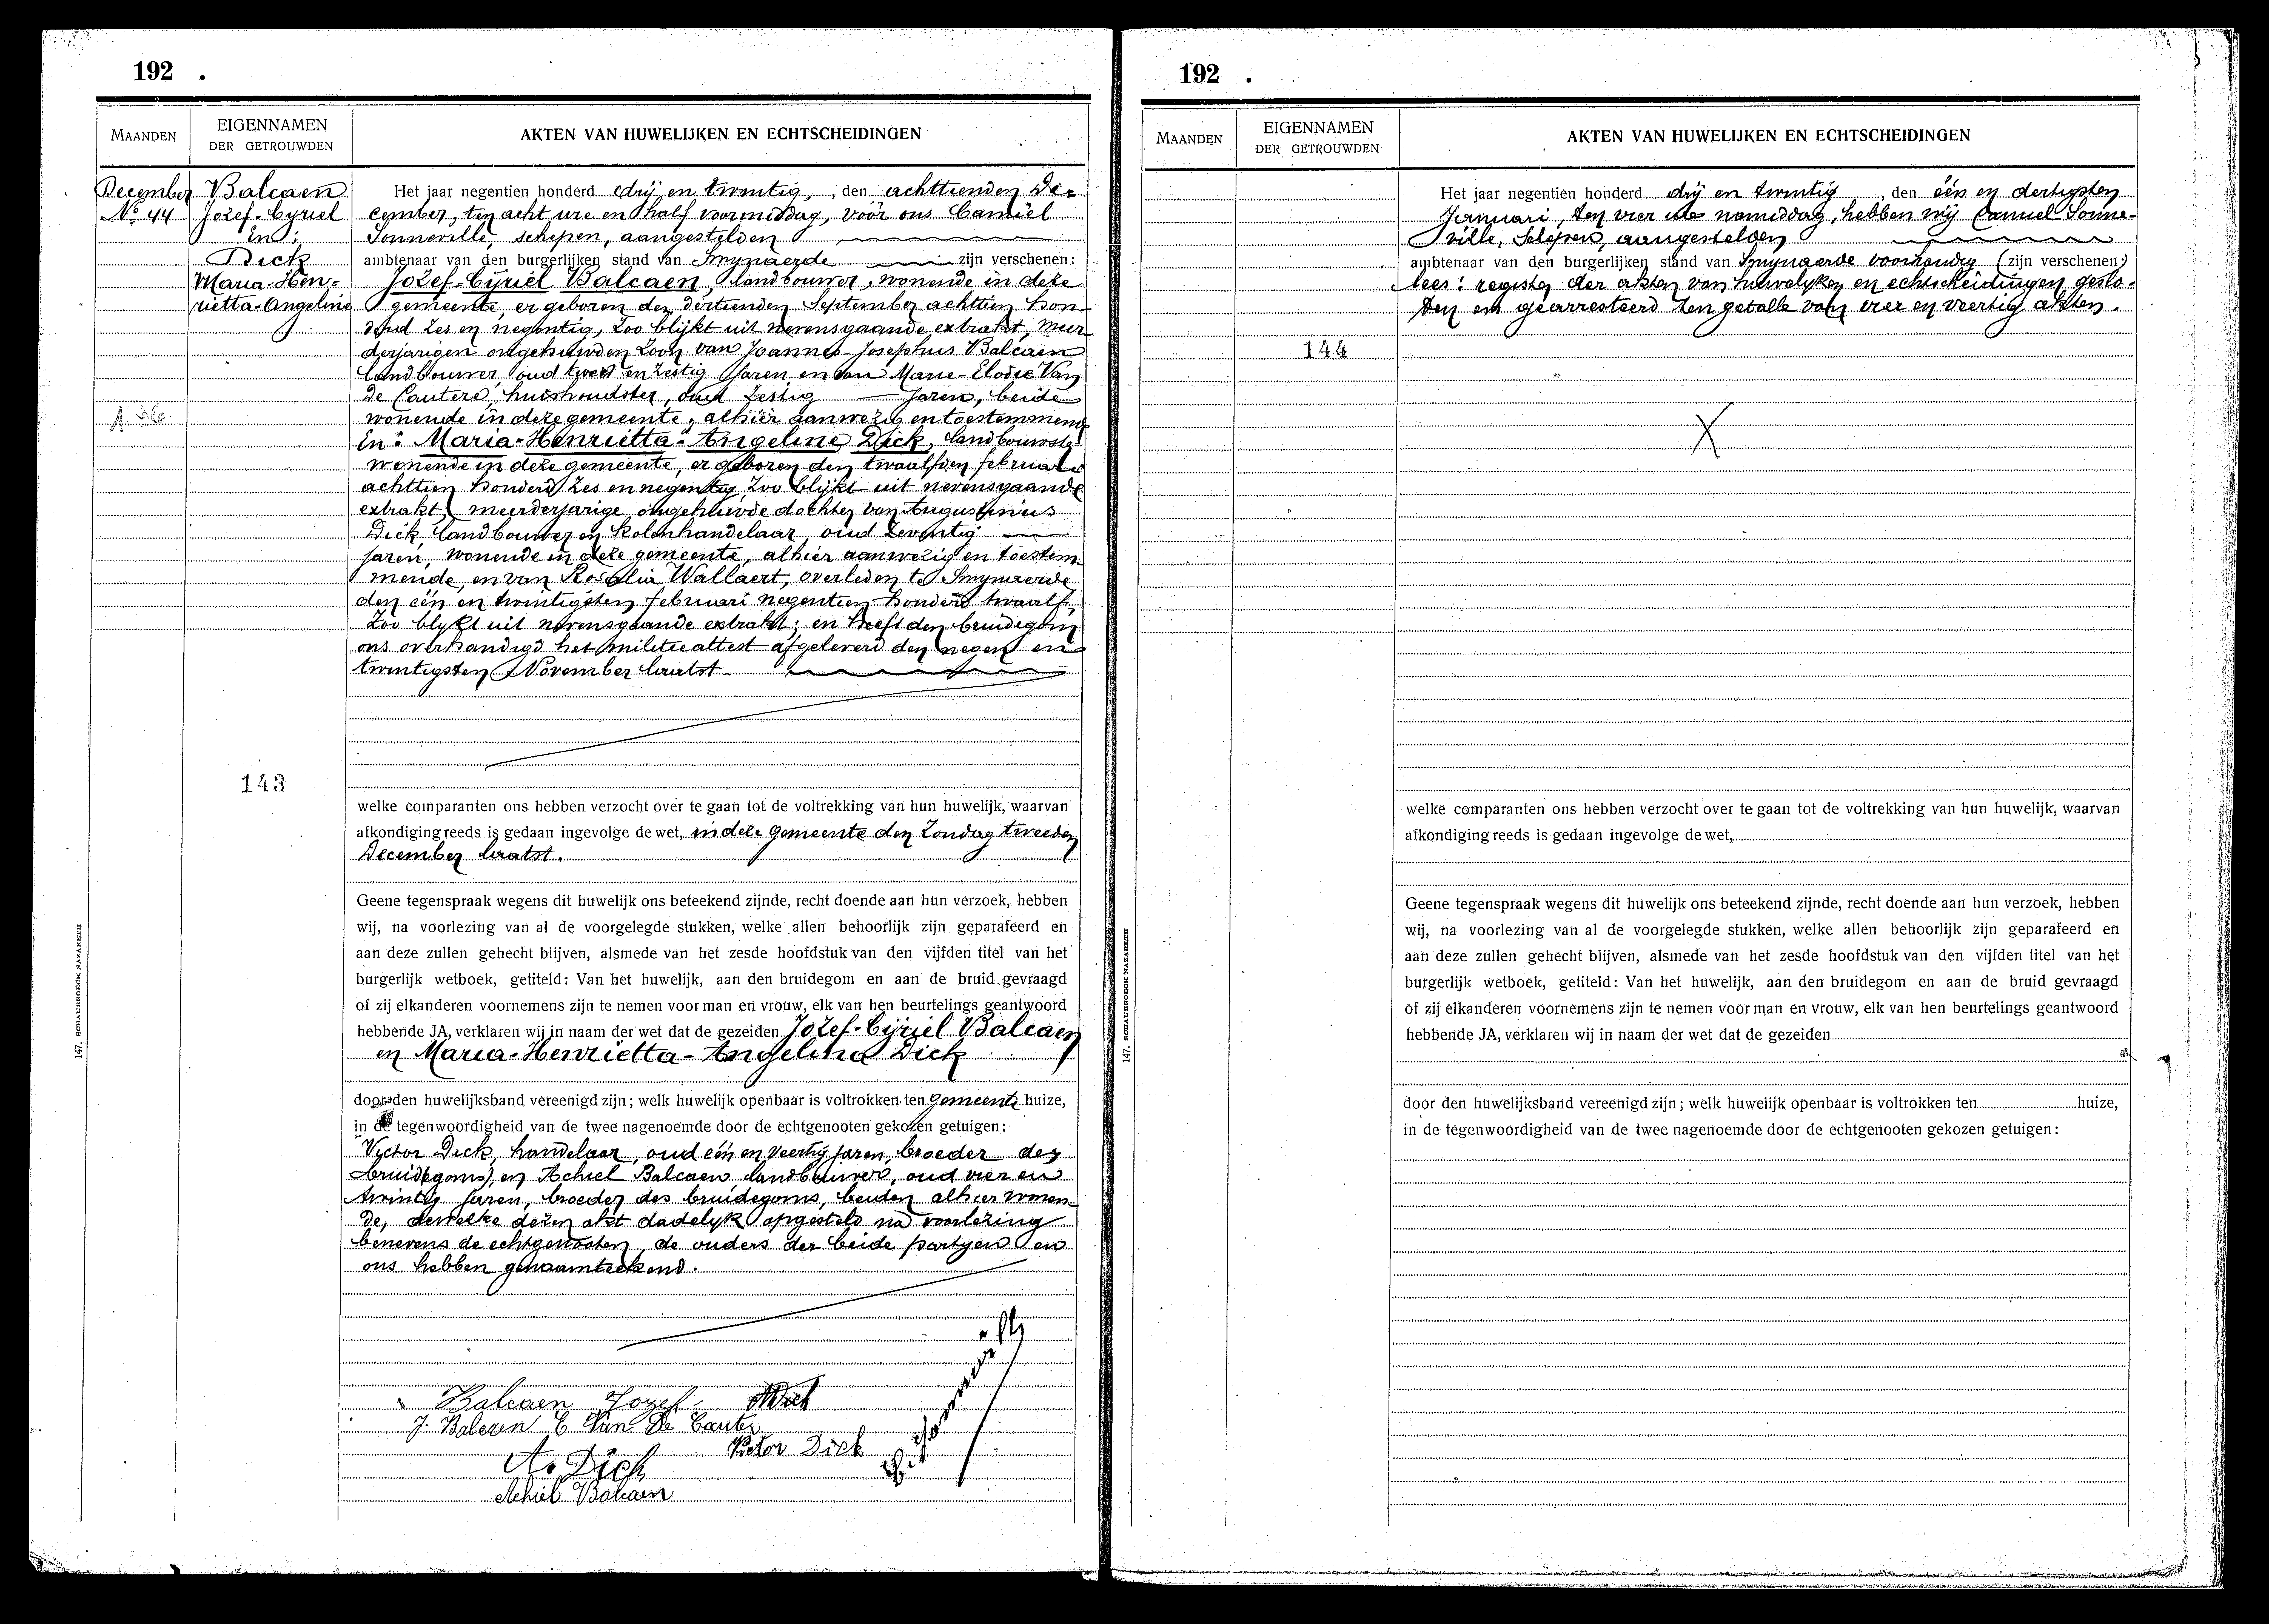 192 .
MAANDEN
EIGENNAMEN
DER GETROUWDEN
AKTEN VAN HUWELIJKEN EN ECHTSCHEIDINGEN
December
No 44
Balcaen
Jozef-Cyriel
En:
Dick
Maria-Hen-
rietta-Angeline
143
Het jaar negentien honderd drij en twintig, den achttienden De-
cember, ten acht ure en half voormiddag, vóór ons Camiel
Sonneville, schepen, aangestelden
ambtenaar van den burgerlijken stand van Smynaerde zijn verschenen:
Jozef-Cyriel Balcaen, landbouwer, wonende in deze
gemeente, er geboren den dertienden September achttien hon-
derd zes en negentig, zoo blijkt uit nevensgaande extrakt, meer-
derjarigen ongehuwden zoon van Joannes-Josephus Balcaen
landbouwer, oud twee en zestig jaren, en van Marie-Elodie Van
De Cautere, huishoudster, oud zestig jaren, beide
wonende in deze gemeente, alhier aanwezig en toestemmend
En: Maria-Henrietta-Angeline Dick, landbouwster
wonende in deze gemeente, er geboren den twaalfden februari
achttien honderd zes en negentig, zoo blijkt uit nevensgaande
extrakt, meerderjarige ongehuwde dochter van Augustinus
Dick, landbouwer en kolenhandelaar, oud zeventig
jaren, wonende in deze gemeente, alhier aanwezig en toestem-
mende, en van Rosalia Wallaert, overleden te Smynaerde
den één en twintigsten februari negentien honderd twaalf,
zoo blykt uit nevensgaande extrakt; en heeft den bruidegom
ons overhandigd het militieattest afgeleverd den negen en
twintigsten November laatst
welke comparanten ons hebben verzocht over te gaan tot de voltrekking van hun huwelijk, waarvan
afkondiging reeds is gedaan ingevolge de wet, in deze gemeente den Zondag tweeden
December laatst.
Geene tegenspraak wegens dit huwelijk ons beteekend zijnde, recht doende aan hun verzoek, hebben
wij, na voorlezing van al de voorgelegde stukken, welke allen behoorlijk zijn geparafeerd en
aan deze zullen gehecht blijven, alsmede van het zesde hoofdstuk van den vijfden titel van het
burgerlijk wetboek, getiteld: Van het huwelijk, aan den bruidegom en aan de bruid gevraagd
of zij elkanderen voornemens zijn te nemen voor man en vrouw, elk van hen beurtelings geantwoord
hebbende JA, verklaren wij in naam der wet dat de gezeiden Jozef-Cyriel Balcaen
en Maria-Henrietta-Angelina Dick
door den huwelijksband vereenigd zijn; welk huwelijk openbaar is voltrokken ten gemeente huize,
in de tegenwoordigheid van de twee nagenoemde door de echtgenooten gekozen getuigen:
Victor Dick, handelaar, oud één en veertig jaren, broeder der
bruidegoms, en Achiel Balcaen, landbouwer, oud vier en
twintig jaren, broeder des bruidegoms, beiden alhier wonen-
de, dewelke dezen akt dadelyk opgesteld na voorlezing
benevens de echtgenooten, de ouders der beide partyen en
ons hebben genaamteekend.
Balcaen Jozef
J. Balcaen E Van De Cauter
Victor Dick
A. Dick
Achiel Balcaen
147. SCHAUBROECK NAZARETH
192 .
MAANDEN
EIGENNAMEN
DER GETROUWDEN
AKTEN VAN HUWELIJKEN EN ECHTSCHEIDINGEN
144
Het jaar negentien honderd drij en twintig, den één en dertigsten
Januari, ten vier ure namiddag, hebben wij Camiel Sonne-
ville, Schepen, aangestelden
ambtenaar van den burgerlijken stand van Smynaerde voorhandig (zijn verschenen:)
lees: register der akten van huwelyken en echtscheidingen geslo-
ten en gearresteerd ten getalle van vier en veertig akten.
welke comparanten ons hebben verzocht over te gaan tot de voltrekking van hun huwelijk, waarvan
afkondiging reeds is gedaan ingevolge de wet,
Geene tegenspraak wegens dit huwelijk ons beteekend zijnde, recht doende aan hun verzoek, hebben
wij, na voorlezing van al de voorgelegde stukken, welke allen behoorlijk zijn geparafeerd en
aan deze zullen gehecht blijven, alsmede van het zesde hoofdstuk van den vijfden titel van het
burgerlijk wetboek, getiteld: Van het huwelijk, aan den bruidegom en aan de bruid gevraagd
of zij elkanderen voornemens zijn te nemen voor man en vrouw, elk van hen beurtelings geantwoord
hebbende JA, verklaren wij in naam der wet dat de gezeiden
door den huwelijksband vereenigd zijn; welk huwelijk openbaar is voltrokken ten huize,
in de tegenwoordigheid van de twee nagenoemde door de echtgenooten gekozen getuigen:
147. SCHAUBROECK NAZARETH